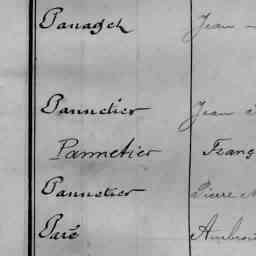 Panagch Jean
Pannetier Jean
Pannetier Franç
Pannetier Pierre
Paré Ambroi